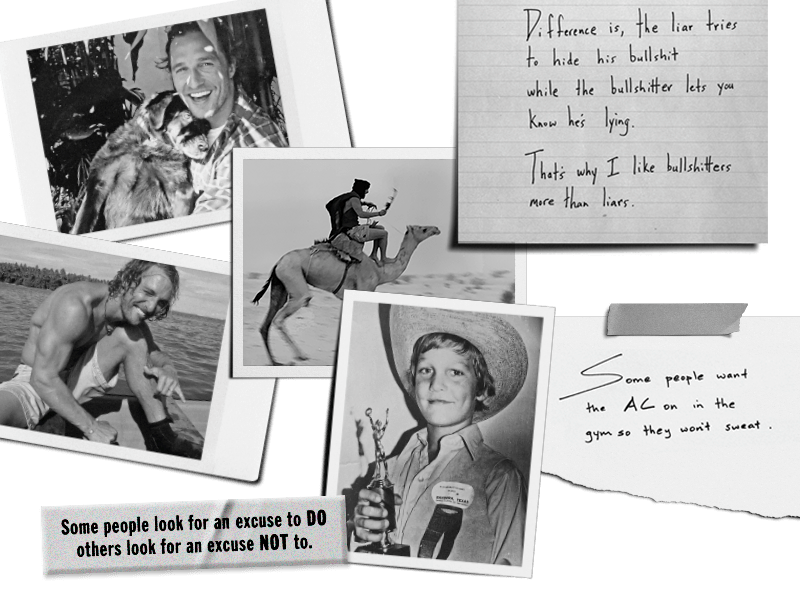 Difference is, the liar tries
to hide his bullshit
while the bullshitter lets you
know he's lying.
That's why I like bullshitters
more than liars.
Some people want
the AC on in the
gym so they won't sweat.
TEXAS
Some people look for an excuse to DO
others look for an excuse NOT to.